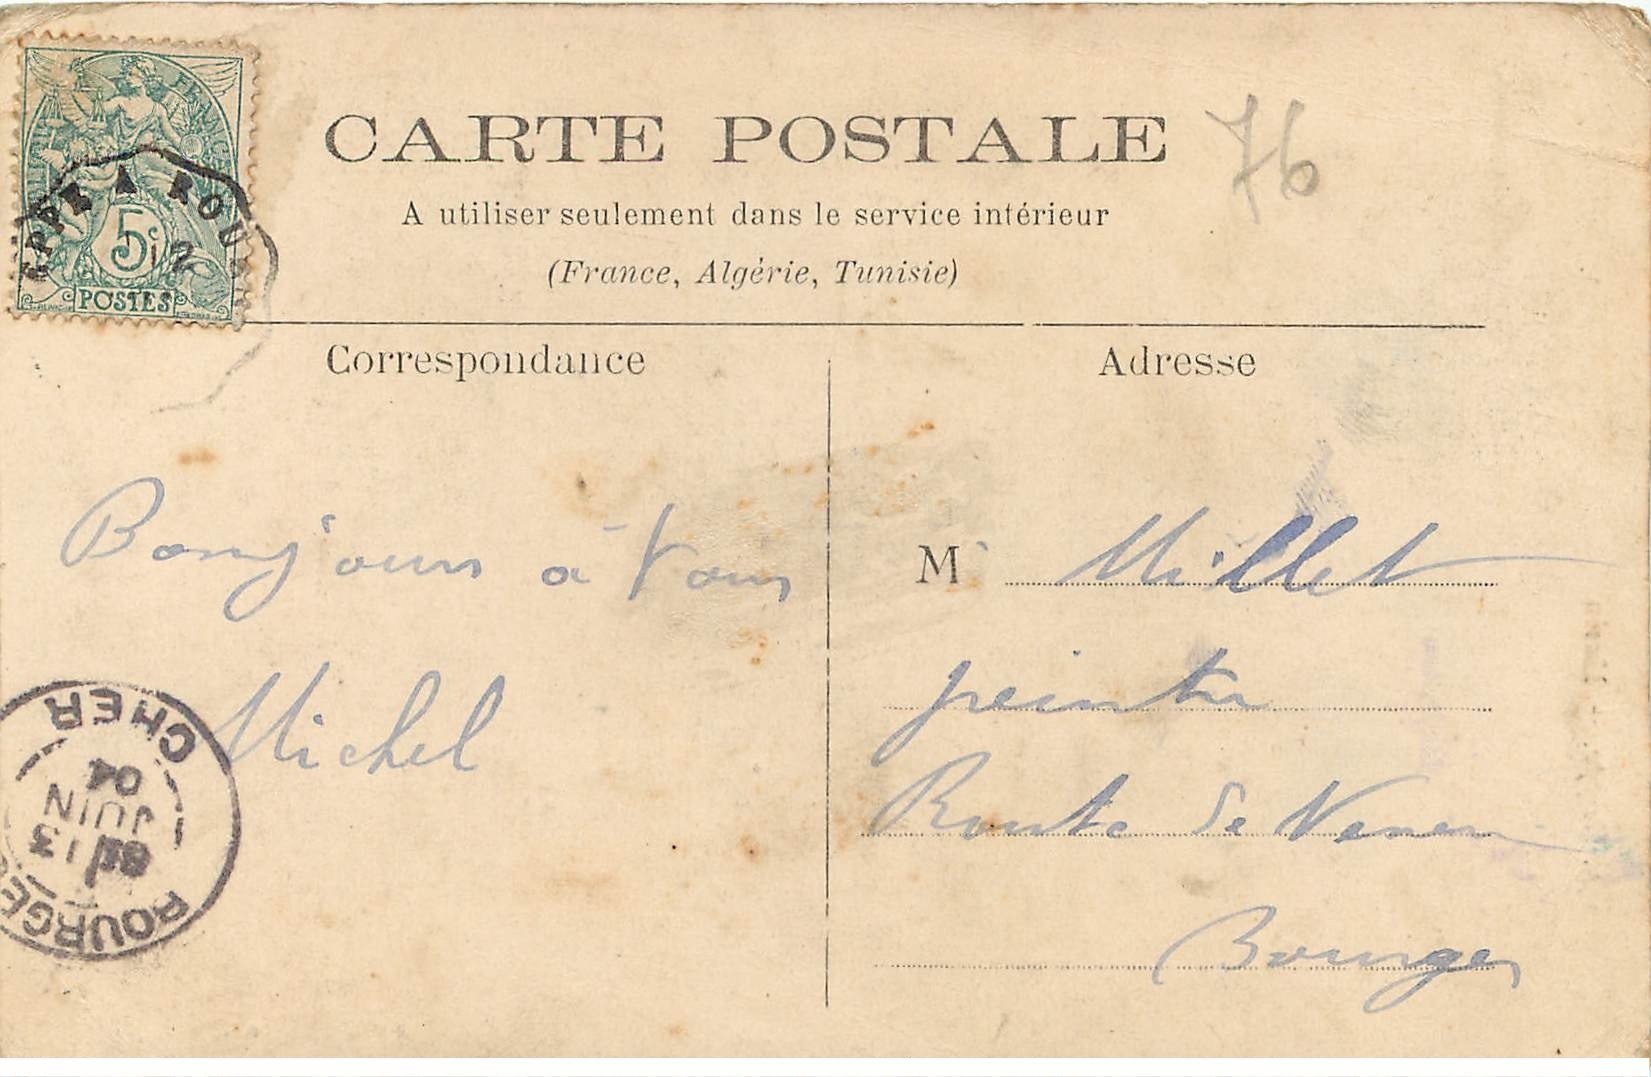 CARTE POSTALE
76
A utiliser seulement dans le service intérieur
(France, Algérie, Tunisie)
5c
POSTES
EPPE A ROU
12
Correspondance
Adresse
Bonjour à Vous
Michel
M Millet
peintre
Route de
Bourges
BOURGES
13
JUIN
04
CHER